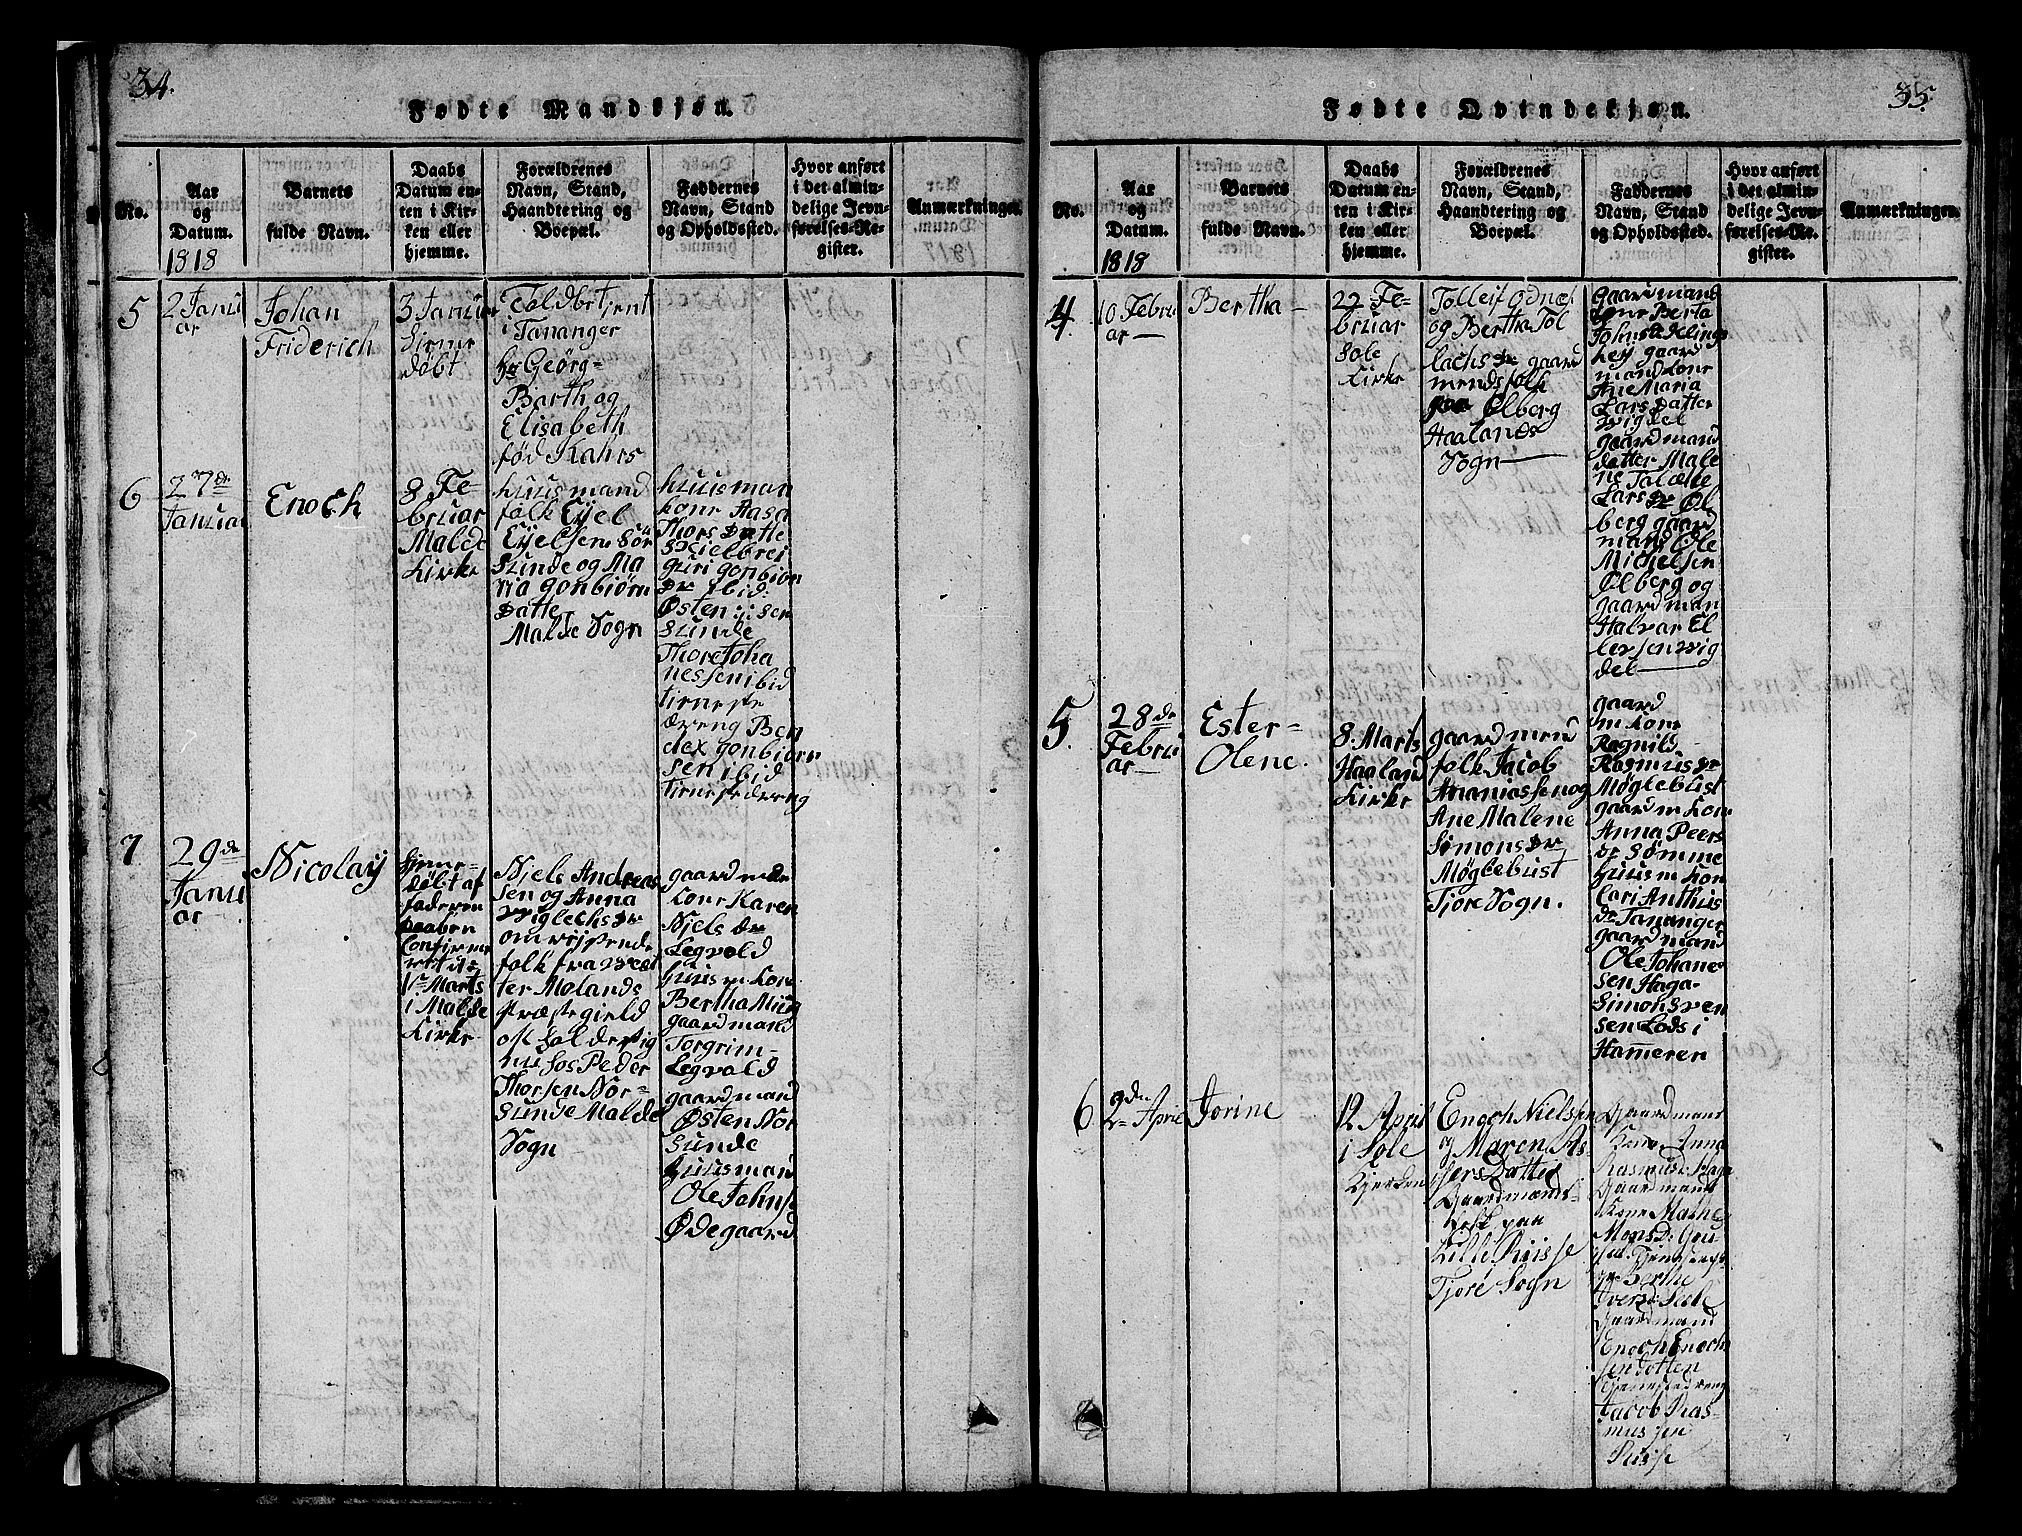 34.
Fødte Mandkjøn.
No.
Aar
og
Datum.
1818
Barnets
fulde Navn.
Daabs
Datum en-
ten i Kir-
ken eller
hjemme.
Forældrenes
Navn, Stand,
Haandtering og
Boepæl.
Faddernes
Navn, Stand
og Opholdssted.
Hvor anført
i det almin-
delige Jevn-
førelses-Re-
gister.
Anmærkninger.
5
2 Janu
ar
Johan
Friderich
3 Januar
hieme
døbt
Toldbetjent
i Tananger
hr Geörg
Barth og
Elisabeth
fød Kahrs
6
27de
Januar
Enoch
8 Fe-
bruar
Malde
Kirke
huusmand
folk Ejel
Ejelsen Sör
Sunde og Ma
ria gonbiörn
Datte
Malde Sogn
huusman
kone Aasa
Thors Datte
Skielbrei
guri gonbiörn
Dr ibid:
Østen
Sunde
Thore Joha
nessen ibid
tieneste
dreng Ben
dex gonbiörn
sen ibid
tienestedreng
7
29de
Janu
ar
Nicolay
hieme-
døbt af
faderen
Daaben
Confirme
ret d:
1te Marts
i Malde
Kirke
Niels Andreas
sen og Anna
Viglechs Dr
omreisende
folk fra Vest
ter Molands
Præstegield
hos Peder
Thorsen Nör-
Sunde Malde
Sogn
gaardm
kone Karen
Niels Dr
Legvold
huusm kone
Bertha
gaardmand
Torgrim
Legvold
gaardmand
Østen Nör
Sunde
huusmand
Ole Johns:
Ødegaard
35
Fødte Qvindekjøn.
No.
Aar
og
Datum.
1818
Barnets
fulde Navn.
Daabs
Datum en-
ten i Kir-
ken eller
hjemme.
Forældrenes
Navn, Stand,
Haandtering og
Boepæl.
Faddernes
Navn, Stand
og Opholdssted.
Hvor anført
i det almin-
delige Jevn-
førelses-Re-
gister.
Anmærkninger.
4
10 Febru
ar
Bertha
22 Fe-
bruar
Sole
Kirke
Tolleif Odnæs
og Bertha Tol
lachs Dr gaard
mendsfolk
paa Ølberg
Haalands
Sogn
gaardmand
kone Berta
Johns
gaard
mand kone
Ane Maria
Lars Datter
Vigdel
gaardmand
datter Male
ne
Lars Dr Øl
berg gaard
mand Ole
Michelsen
Ølberg og
gaardman
Halvar El
lersen Vig
del
5.
28de
Febru
ar
Ester
Olene.
8 Marts
Haaland
Kirke
gaardmen
folk Jacob
Ananiassen og
Ane Malene
Simons Dr
Møglebust
Tjore Sogn.
gaard
m kone
Ragnild
Rasmus Dr
Møglebust
gaardm kone
Anna Peers
Dr Sømme
huusm kone
Cari Anthus
Dr Tananger
gaardmand
Ole Johane
sen Haga
Simon Sven
sen Lods i
Hameren
6
2den April
Jorine
12 April
i Sole
Kjerken
Engoch Nielsen
og Maren As-
sers Datter
Gaardmænds-
folk paa
Lille Riisse
Tjore Sogn
Gaardmans
Kone Anna
Rasmusd: Haga
Gaardmands
Kone Malene
Monsd:
Berthe
Iversd: Sele
Gaardmand
Enoch Enoch
sen Jotten
Tjenestedreng
Jacob Ras-
mussen
Riisse